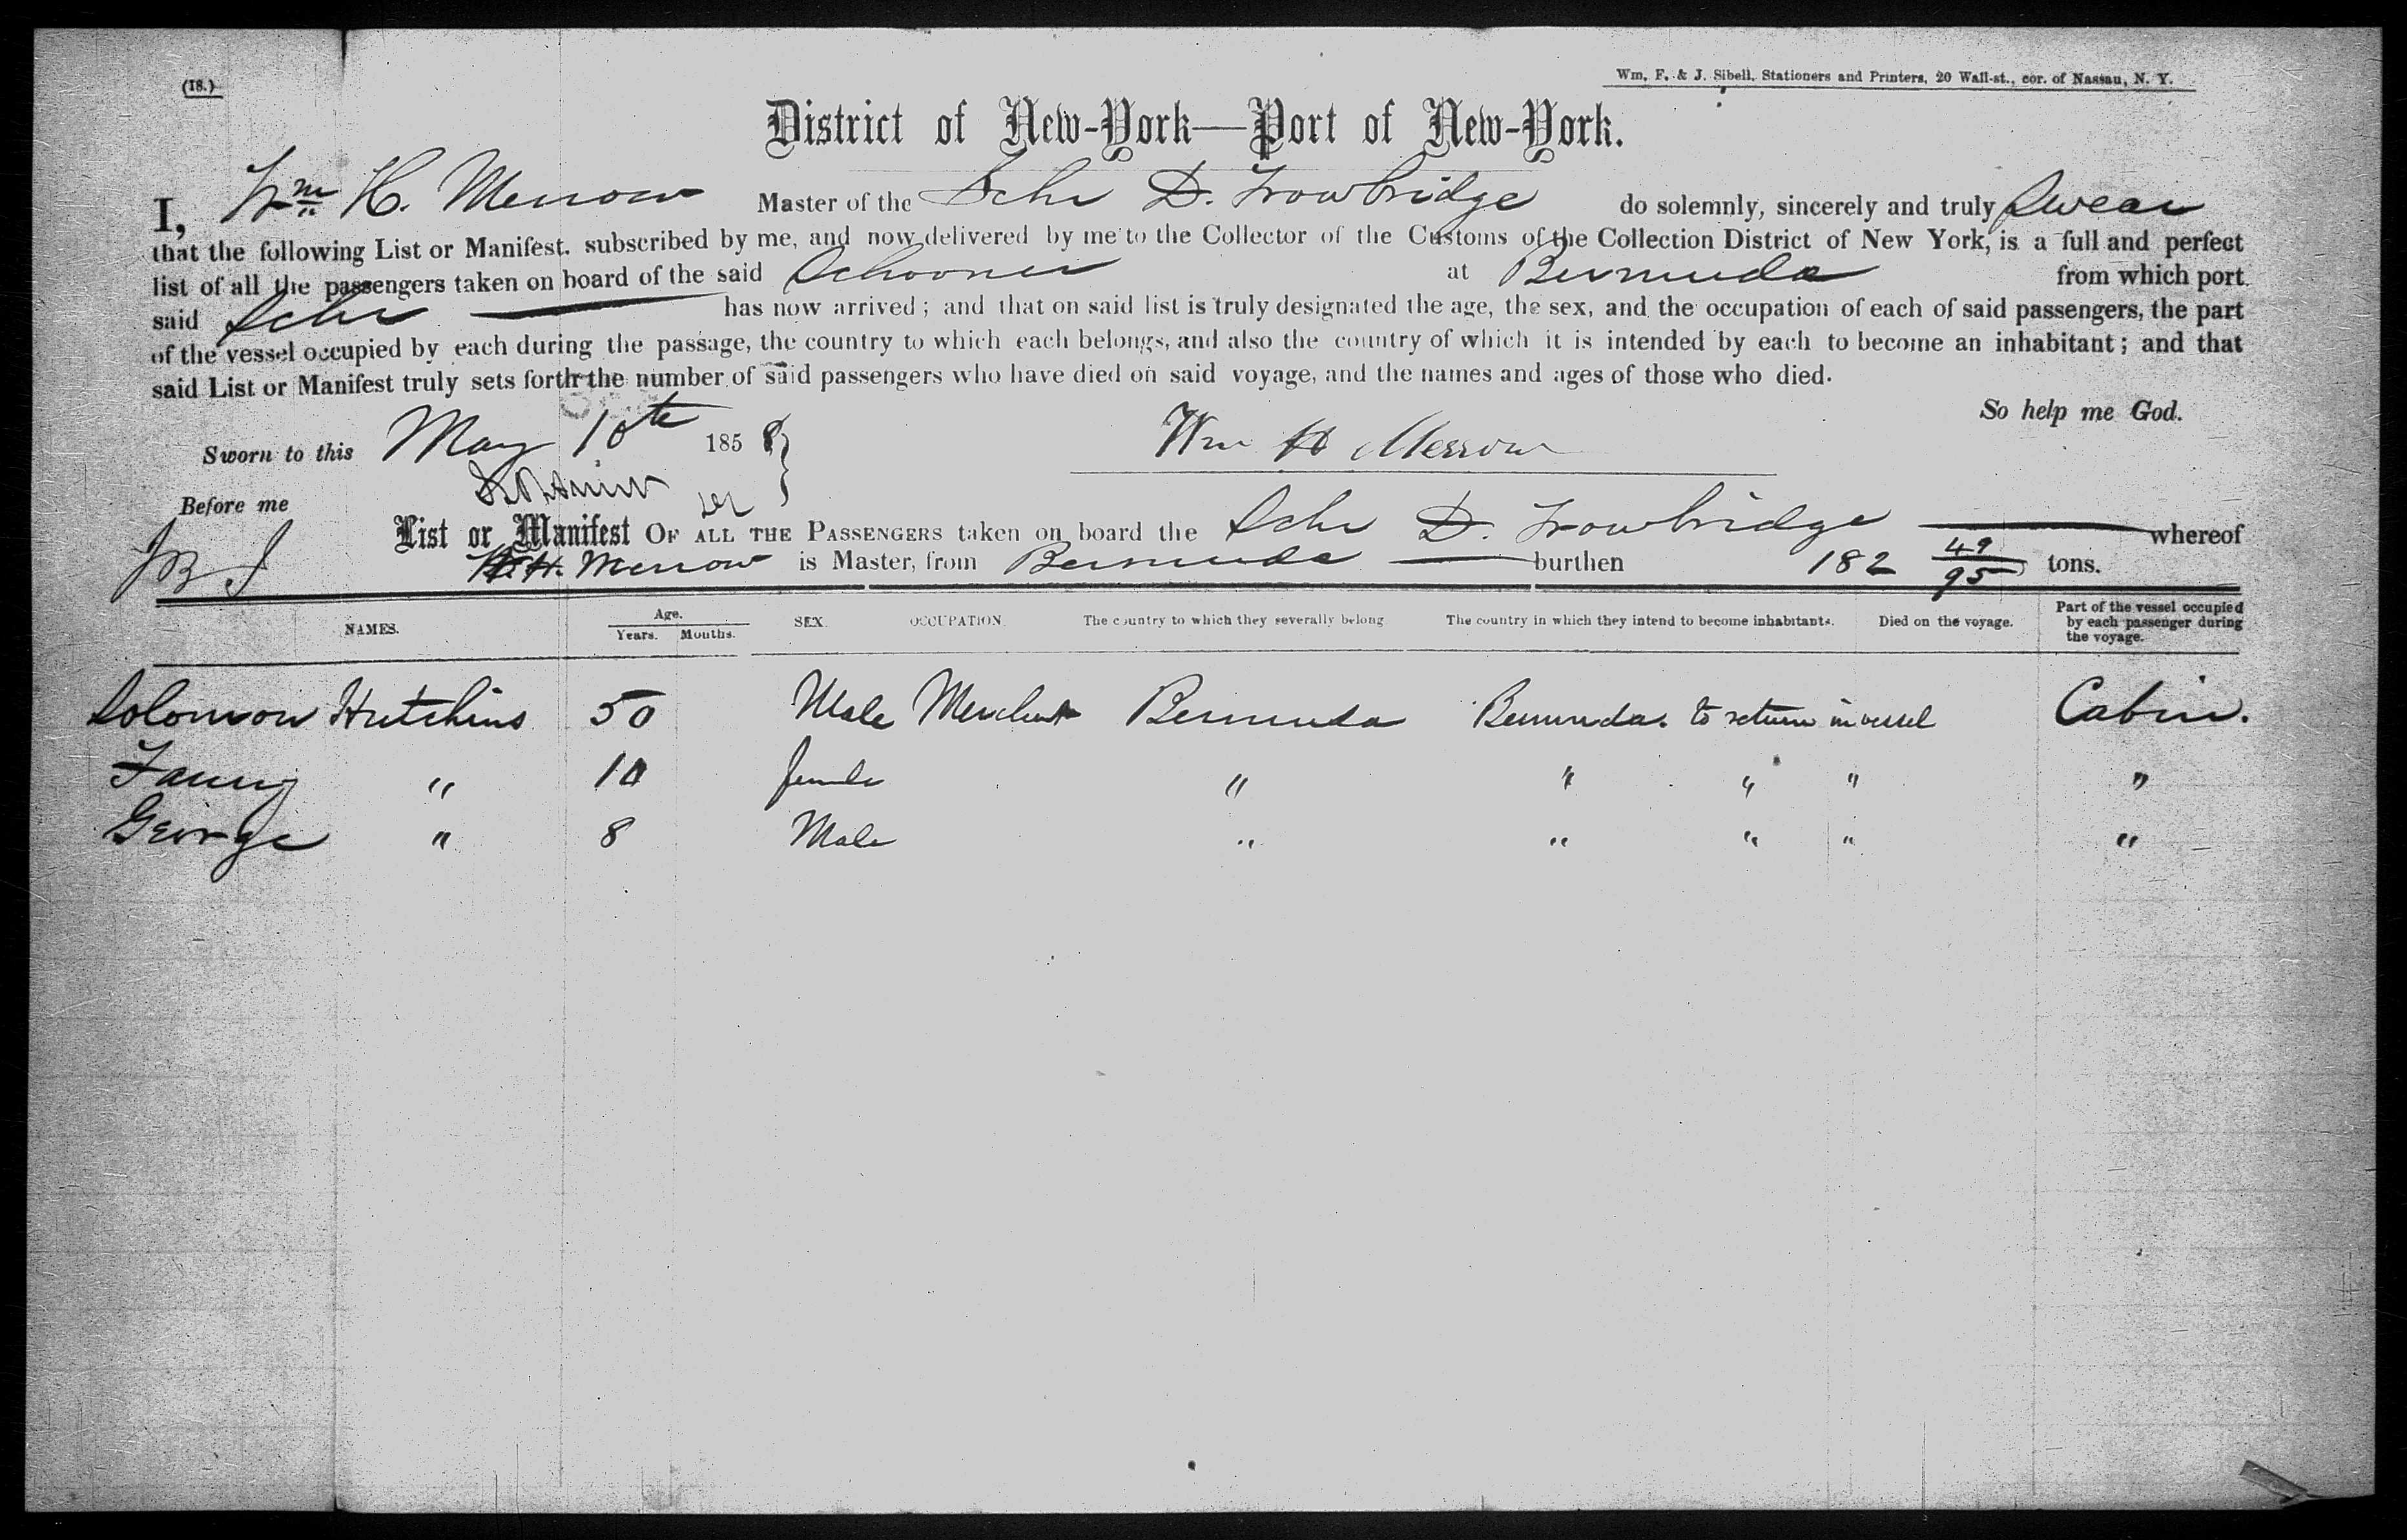 (18.)
Wm. F. & J. Sibell, Stationers and Printers, 20 Wall-st., cor. of Nassau, N. Y.
District of New-York—Port of New-York.
I, Wm H. Merrow Master of the Schr D. Trowbridge do solemnly, sincerely and truly Swear
that the following List or Manifest, subscribed by me, and now delivered by me to the Collector of the Customs of the Collection District of New York, is a full and perfect
list of all the passengers taken on board of the said Schooner at Bermuda from which port
said Schr has now arrived; and that on said list is truly designated the age, the sex, and the occupation of each of said passengers, the part
of the vessel occupied by each during the passage, the country to which each belongs, and also the country of which it is intended by each to become an inhabitant; and that
said List or Manifest truly sets forth the number of said passengers who have died on said voyage, and the names and ages of those who died.
So help me God.
Sworn to this May 10th 1858
Wm H Merrow
Before me
List or Manifest OF ALL THE PASSENGERS taken on board the Schr D. Trowbridge whereof
W. H. Merrow is Master, from Bermuda burthen 182 49/95 tons.
NAMES. Age. Years. Months. SEX. OCCUPATION. The country to which they severally belong The country in which they intend to become inhabitants. Died on the voyage. Part of the vessel occupied by each passenger during the voyage.
Solomon Hutchins 50 Male Merchant Bermuda Bermuda. to return in vessel Cabin.
Fanny " 10 female " " " " "
George " 8 Male " " " " "